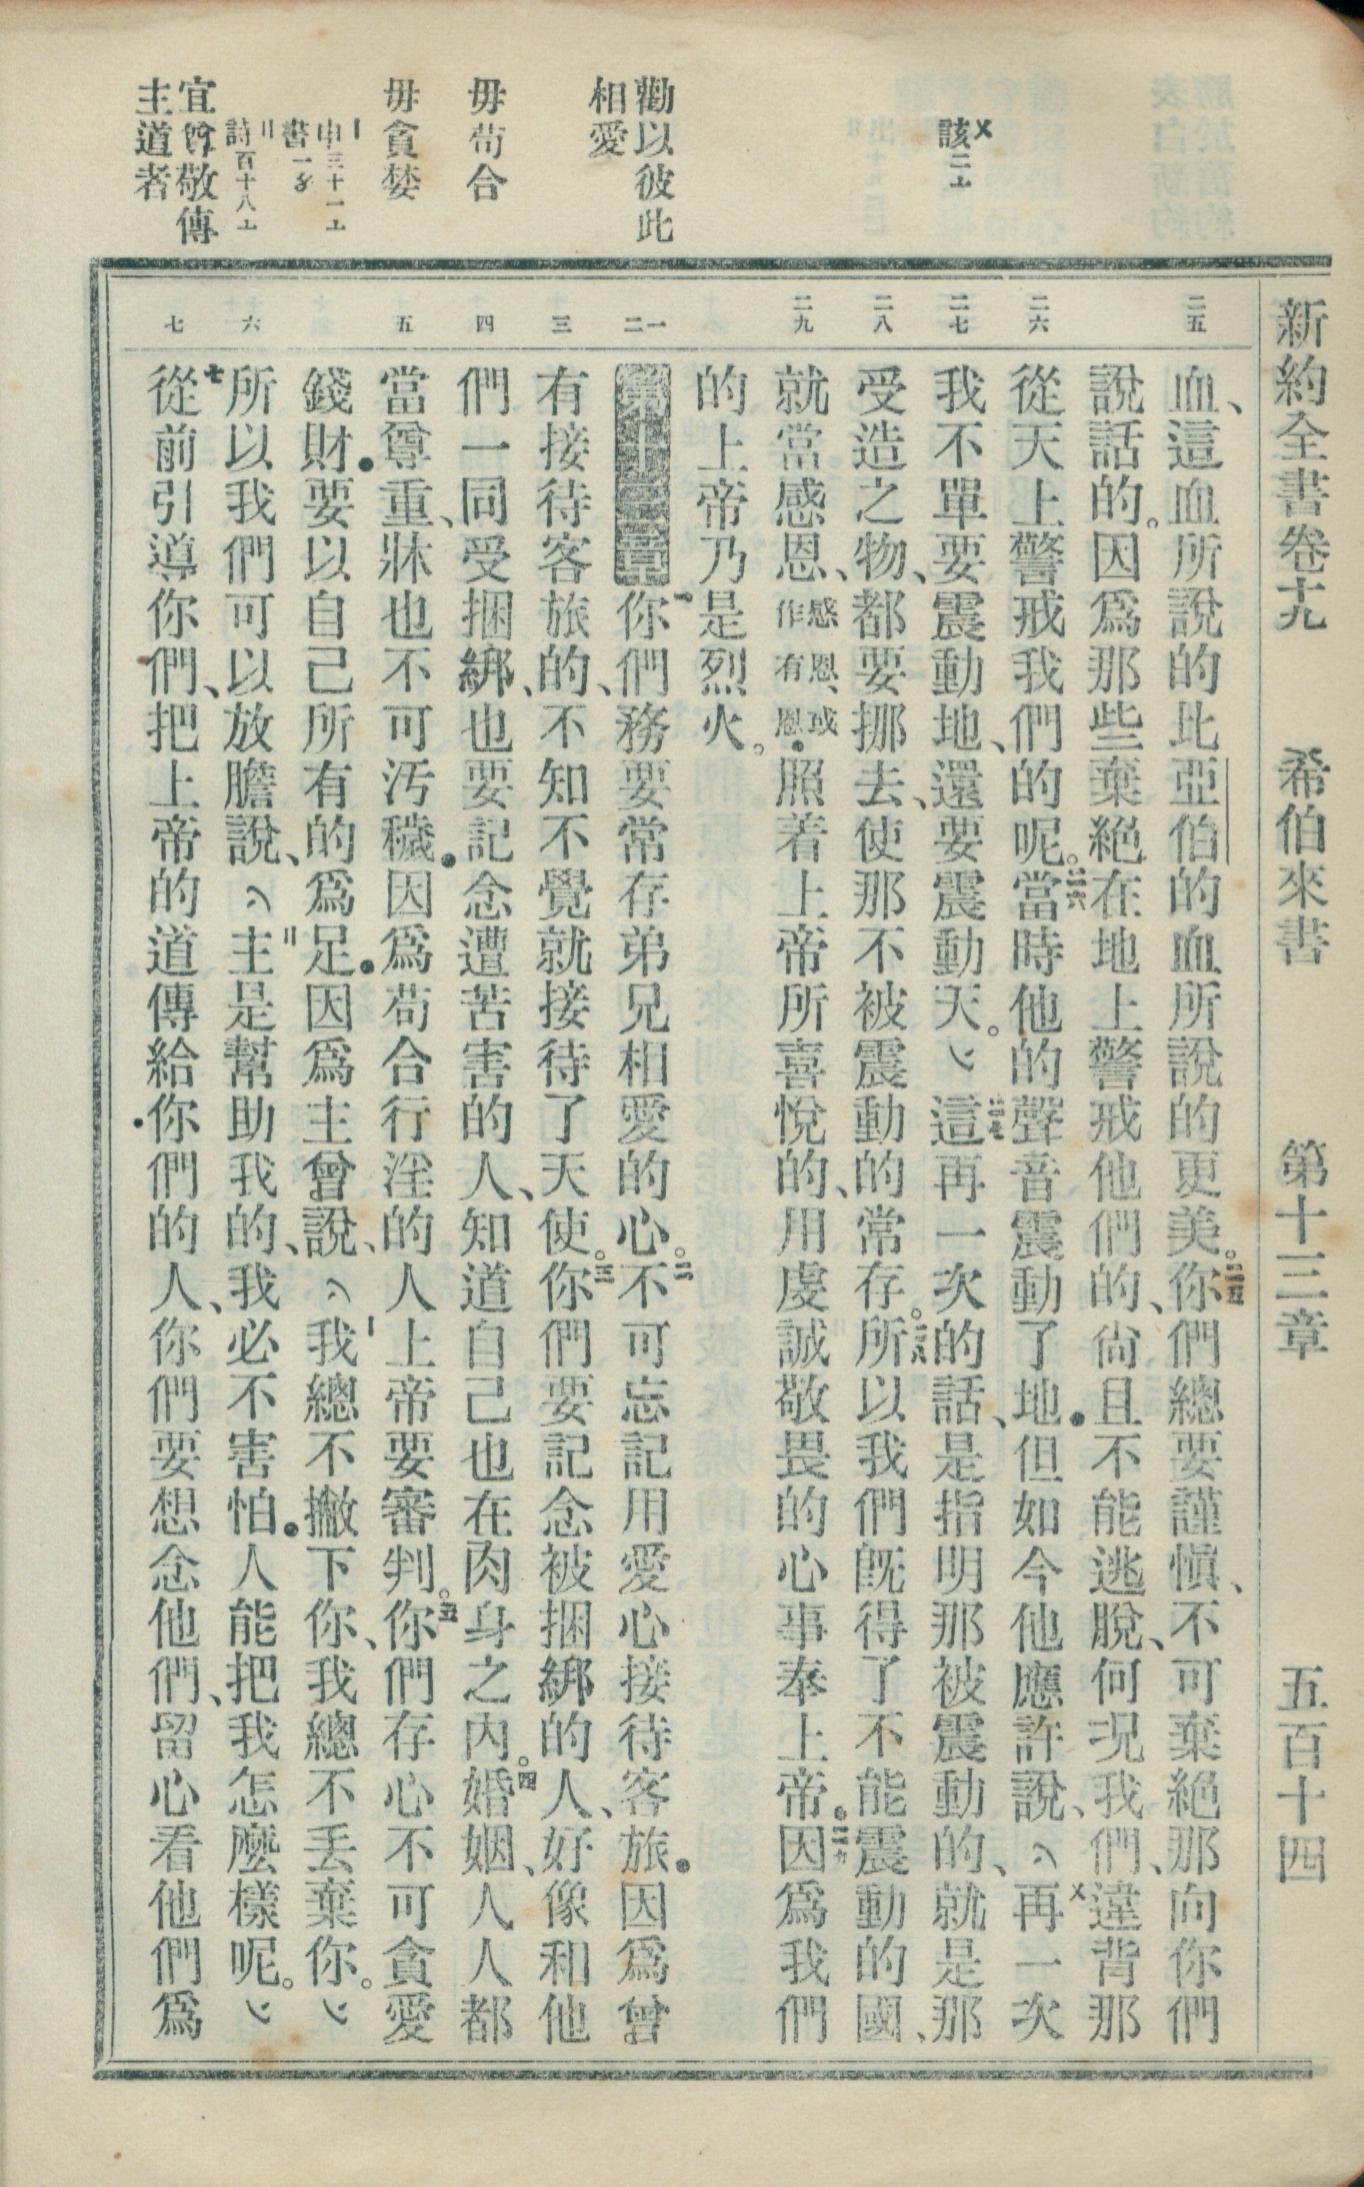 新約全書卷十九 希伯來書 第十三章 五百十四
二五
二六
二七
二八
二九
一二
三
四
五
六
七
該二〦
勸以彼此
相愛
毋苟合
毋貪婪
申三十一〦
書一〥
詩百十八〦
宜尊敬傳
主道者
血、這血所說的比亞伯的血所說的更美。二五你們總要謹慎、不可棄絕那向你們
說話的。因爲那些棄絕在地上警戒他們的、尙且不能逃脫、何况我們、違背那
從天上警戒我們的呢。二六當時他的聲音震動了地.但如今他應許說、〈再一次
我不單要震動地、還要震動天。〉二七這再一次的話、是指明那被震動的、就是那
受造之物、都要挪去、使那不被震動的常存。二八所以我們旣得了不能震動的國、
就當感恩、感恩、或作有恩.照着上帝所喜悅的、用虔誠敬畏的心事奉上帝.二九因爲我們
的上帝乃是烈火。
第十三章一你們務要常存弟兄相愛的心。二不可忘記用愛心接待客旅.因爲曾
有接待客旅的、不知不覺就接待了天使。三你們要記念被捆綁的人、好像和他
們一同受捆綁、也要記念遭苦害的人、知道自己也在肉身之內。四婚姻、人人都
當尊重、牀也不可汚穢.因爲苟合行淫的人上帝要審判。五你們存心不可貪愛
錢財.要以自己所有的爲足.因爲主曾說、〈我總不撇下你、我總不丟棄你。〉
六所以我們可以放膽說、〈主是幫助我的、我必不害怕.人能把我怎麼樣呢。〉
七從前引導你們、把上帝的道傳給你們的人、你們要想念他們、留心看他們爲